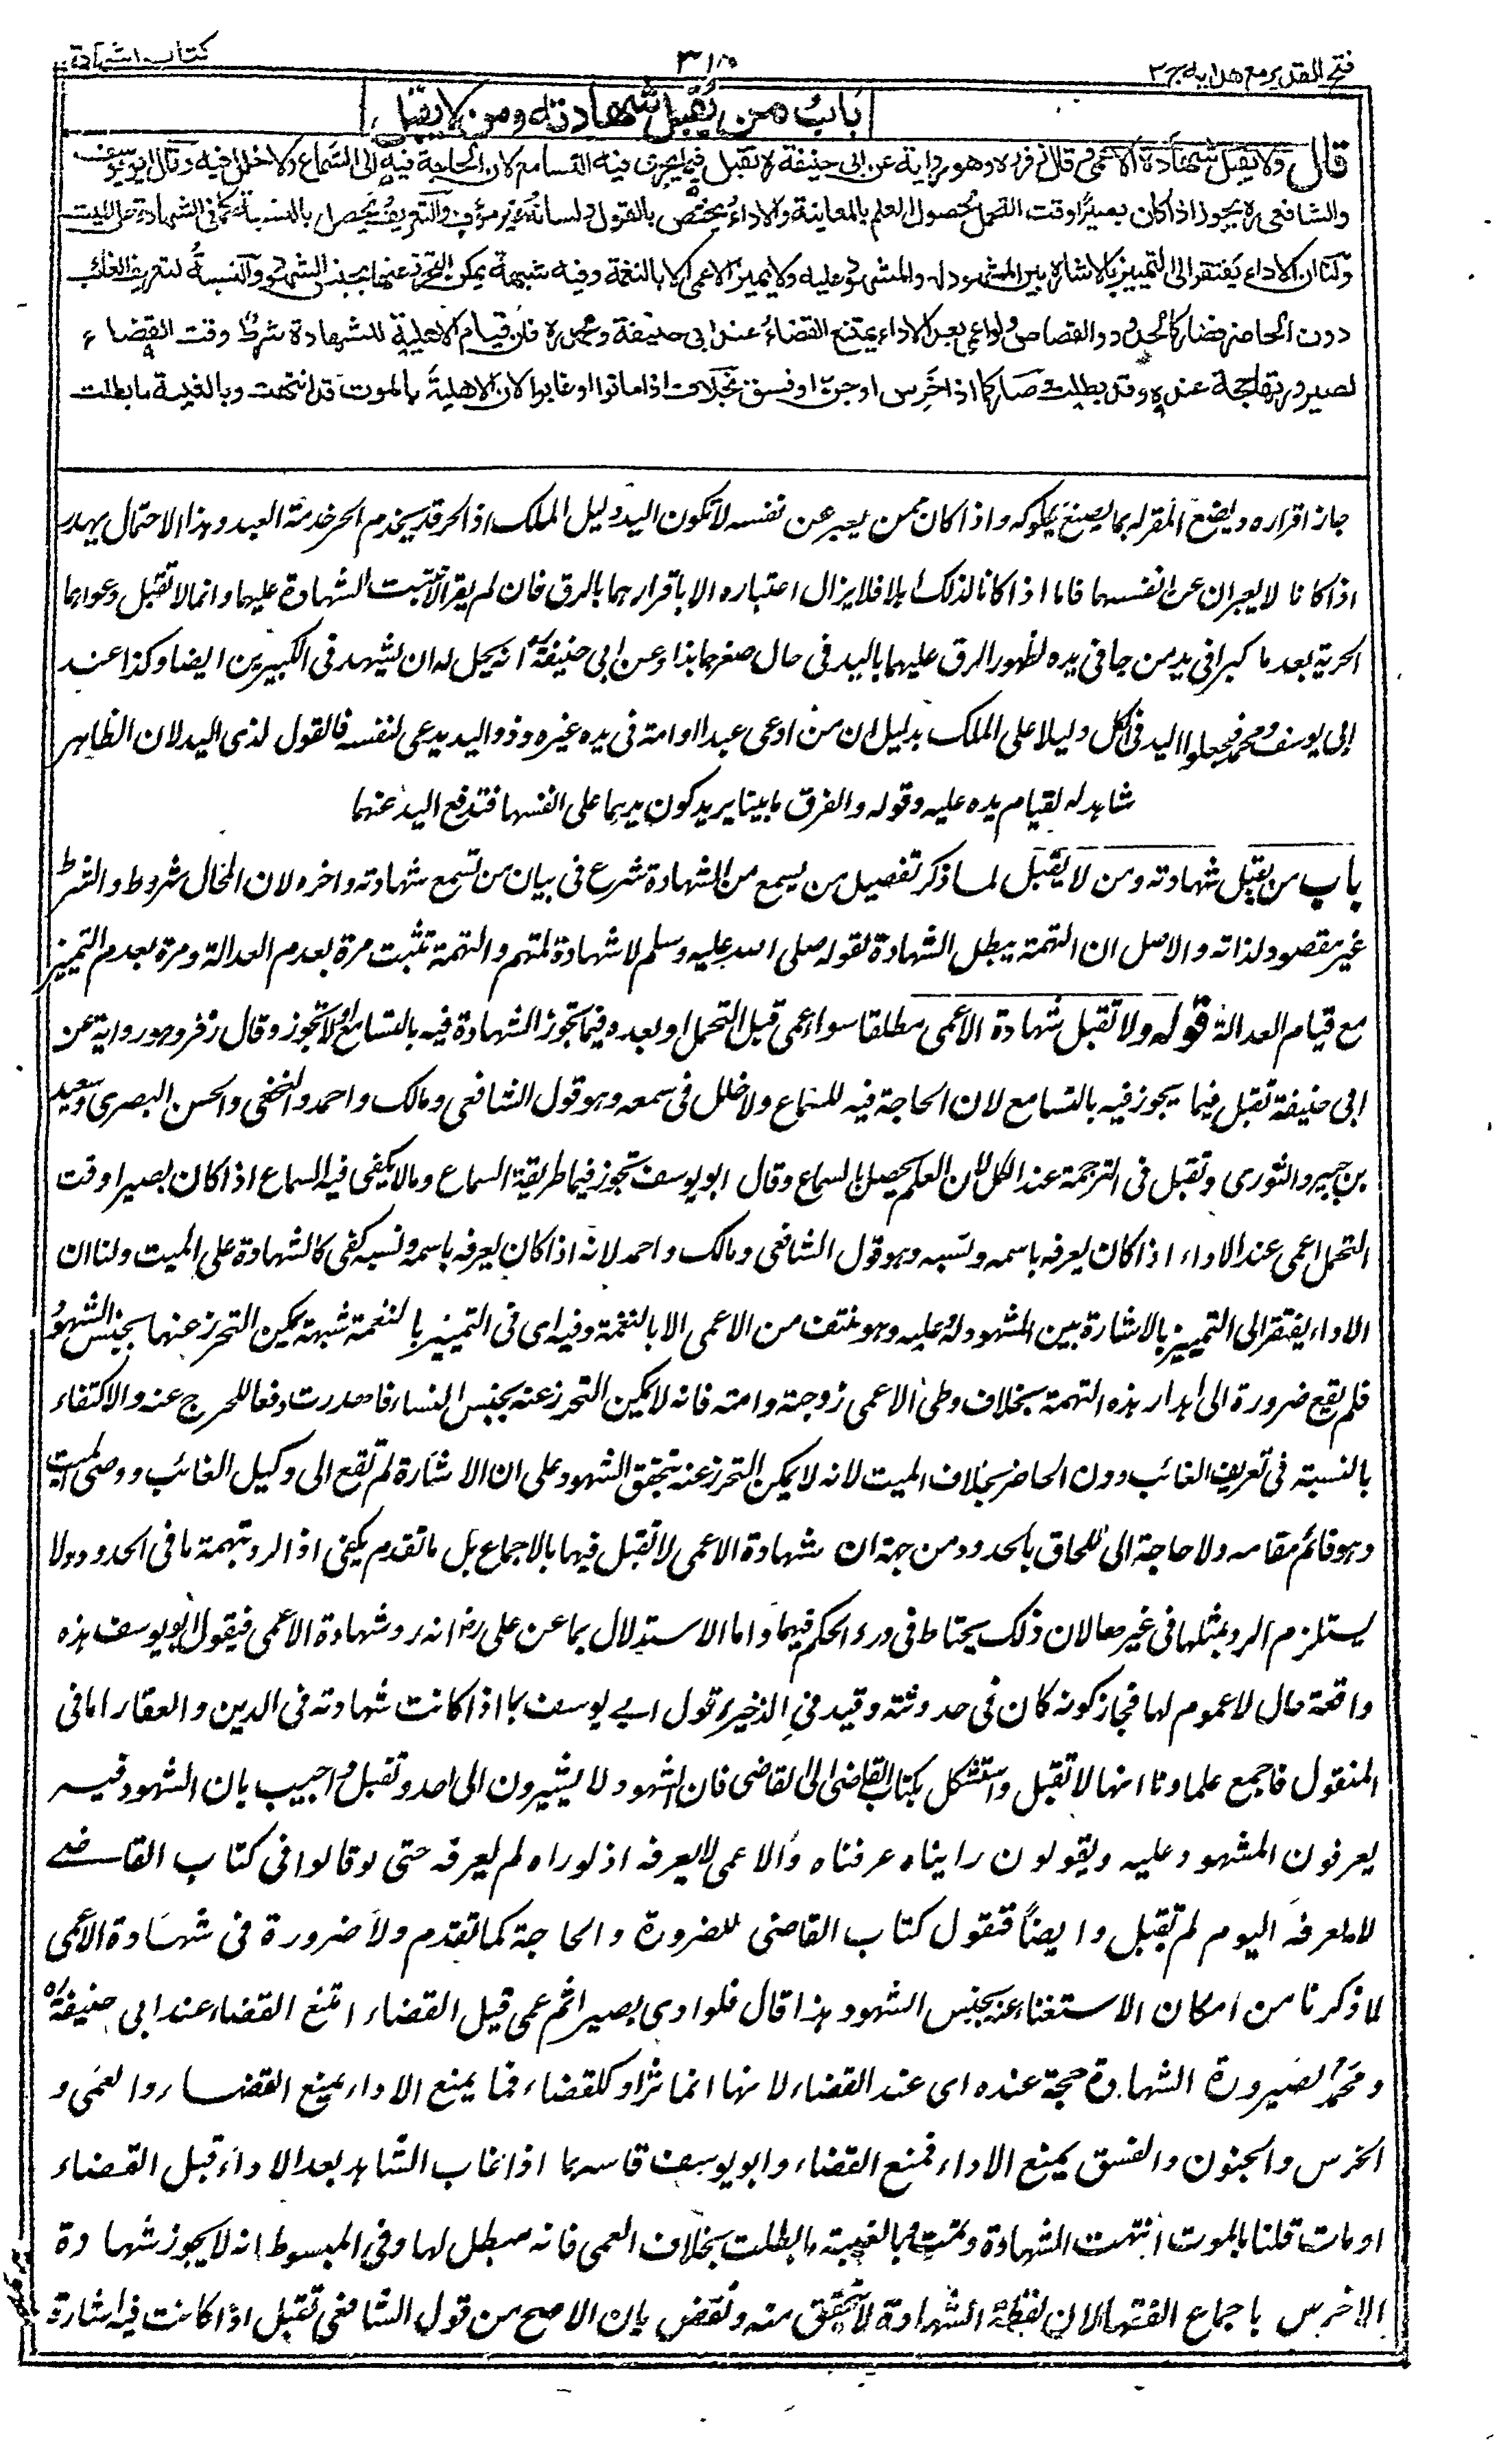 فتح القدير مع هدايه ج ٣
كتاب الشهادة
باب من تقبل شهادته ومن لا تقبل
قال ولا يقبل شهادة الاعمى وقال زفر ره وهو رواية عن ابى حنيفة ره تقبل فيما يجرى فيه التسامع لان الحاجة فيه الى السماع ولا خلل فيه وقال ابو يوسف
والشافعى ره يجوز اذا كان بصيرًا وقت التحمل لحصول العلم بالمعاينة والاداء يختص بالقول ولسانه غير مؤف والتعريف يحصل بالنسبة كما فى الشهادة على الميت
ولنا ان الاداء يفتقر الى التمييز بالاشارة بين المشهود له والمشهود عليه ولا يميز الاعمى الا بالنغمة وفيه شبهة يمكن التحرز عنها بجنس الشهود والنسبة لتعريف الغائب
دون الحاضر فصار كالحدود والقصاص ولو عمى بعد الاداء يمتنع القضاء عند ابى حنيفة ومحمد ره لان قيام الاهلية للشهادة شرط وقت القضاء
لصيرورتها حجة عنده وقد بطلت وصار كما اذا خرس او جن او فسق بخلاف اذا ماتوا او غابوا لان الاهلية بالموت قد انتهت وبالغيبة ما بطلت
جاز اقراره ويضع المقر له بما يصنع بمملوكه واذا كان ممن يعبر عن نفسه لا تكون اليد دليل الملك اذ الحر قد يخدم الحر خدمة العبد وهذا الاحتمال يهدر
اذا كانا لا يعبران عن انفسهما فاما اذا كانا لذلك اهلا فلا يزال اعتباره الا باقرارهما بالرق فان لم يقر الا تثبت الشهادة عليهما وانما لا تقبل دعواهما
الحرية بعد ما كبرا فى يد من جا فى يده لظهور الرق عليهما باليد فى حال صغرهما هذا وعن ابى حنيفة انه يحل له ان يشهد فى الكبيرين ايضا وكذا عند
ابى يوسف ومحمد فجعلوا اليد فى الكل دليلا على الملك بدليل ان من ادعى عبدا او امة فى يد غيره وذو اليد يدعى لنفسه فالقول لذى اليد لان الظاهر
شاهد له لقيام يده عليه وقوله والفرق ما بينا يريد كون يديهما على انفسهما فتدفع اليد عنهما
باب من يقبل شهادته ومن لا يقبل لما ذكر تفصيل من يسمع من الشهادة شرع فى بيان من تسمع شهادته واخره لان المحال شروط والشرط
غير مقصود لذاته والاصل ان التهمة يبطل الشهادة لقوله صلى الله عليه وسلم لا شهادة لمتهم والتهمة تثبت مرة بعدم العدالة ومرة بعدم التمييز
مع قيام العدالة قوله ولا تقبل شهادة الاعمى مطلقا سواء عمى قبل التحمل او بعده فيما تجوز الشهادة فيه بالتسامع او لا تجوز وقال زفر وهو رواية عن
ابى حنيفة تقبل فيما يجوز فيه بالتسامع لان الحاجة فيه للسماع ولا خلل فى سمعه وهو قول الشافعى ومالك واحمد والنخعى والحسن البصرى وسعيد
بن جبير والثورى وتقبل فى الترجمة عند الكل لان العلم يحصل بالسماع وقال ابو يوسف تجوز فيما طريقة السماع وما لا يكفى فيه السماع اذا كان بصيرا وقت
التحمل اعمى عند الاداء اذا كان يعرفه باسمه ونسبه وهو قول الشافعى ومالك واحمد لانه اذا كان يعرفه باسمه ونسبه كفى كالشهادة على الميت ولنا ان
الاداء يفتقر الى التمييز بالاشارة بين المشهود له وعليه وهو منتف من الاعمى الا بالنغمة وفيه اى فى التمييز بالنغمة شبهة يمكن التحرز عنها بجنس الشهود
فلم يقع ضرورة الى اهدار هذه التهمة بخلاف وطى الاعمى زوجته وامته فانه لا يمكن التحرز عنه بجنس النساء فاهدرت دفعا للحرج عنه والاكتفاء
بالنسبة فى تعريف الغائب دون الحاضر بخلاف الميت لانه لا يمكن التحرز عنه بتحقق الشهود على ان الاشارة لم تقع الى وكيل الغائب ووصى الميت
وهو قائم مقامه ولا حاجة الى للحاق بالحدود من جهة ان شهادة الاعمى لا تقبل فيها بالاجماع بل ما تقدم يكفى اذ الرد بتهمة ما فى الحدود ولا
يستلزم الرد بمثلها فى غيرها لان ذلك يحتاط فى درء الحكم فيها واما الاستدلال بما عن على رض انه رد شهادة الاعمى فيقول ابو يوسف هذه
واقعة حال لا عموم لها فجاز كونه كان فى حد وثته وقيد فى الذخيرة قول ابى يوسف بما اذا كانت شهادته فى الدين والعقار اما فى
المنقول فاجمع علماونا انها لا تقبل واستشكل بكتاب القاضى الى القاضى فان الشهود لا يشيرون الى احد وتقبل واجيب بان الشهود فيه
يعرفون المشهود عليه ويقولون لو رايناه عرفناه والاعمى لا يعرفه اذ لو راه لم يعرفه حتى لو قالوا فى كتاب القاضى
لا نعرفه اليوم لم تقبل وايضًا فنقول كتاب القاضى للضرورة والحاجة كما تقدم ولا ضرورة فى شهادة الاعمى
لما ذكرنا من امكان الاستغناء عنه بجنس الشهود هذا قال فلو ادى بصيرا ثم عمى قبل القضاء امتنع القضاء عند ابى حنيفة ره
ومحمد لصيرورة الشهادة حجة عنده اى عند القضاء لانها انما تراد للقضاء فما يمنع الاداء يمنع القضاء والعمى و
الخرس والجنون والفسق يمنع الاداء فمنع القضاء وابو يوسف قاسه بما اذا غاب الشاهد بعد الاداء قبل القضاء
او مات قلنا بالموت انتهت الشهادة وتمت وبالغيبة ما بطلت بخلاف العمى فانه مبطل لها وفى المبسوط انه لا يجوز شهادة
الاخرس باجماع الفقهاء لان لفظة الشهادة لا تتحقق منه ونقض بان الاصح من قول الشافعى تقبل اذا كانت فيه اشارة